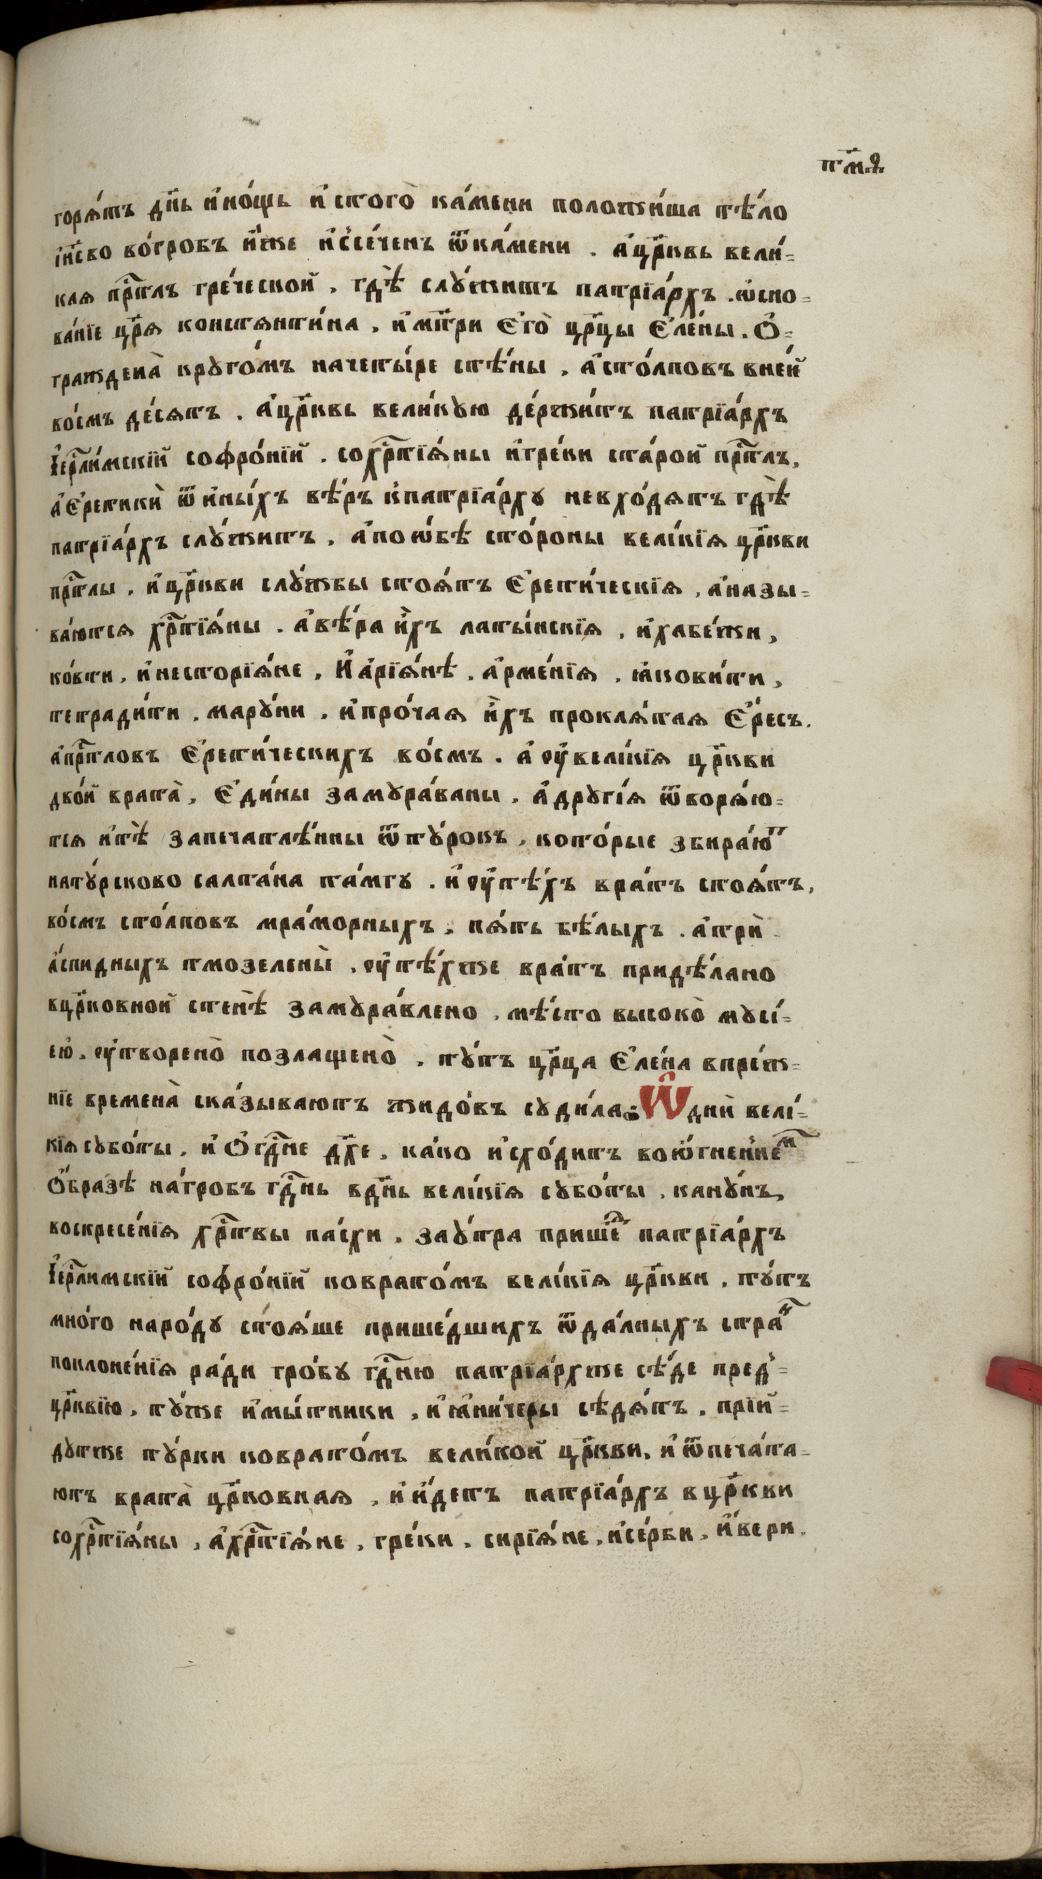 тм҃ѳ.
горѧ́тъ дн҃ь и҆но́щь и҆ стого̀ ка́мени положи́ша тѣ́ло
і҆и҃сво во́гробъ и҆́же и҆сѣ́ченъ ѿка́мени . а҆цр҃ковь вели́=
кая прⷭ҇тлъ гре́ческой , гдѣ̀ слꙋ́житъ патрїа́рхъ . ѡ҆сно=
ва́нїе цр҃ѧ константи́на , и҆ мт҃ри є҆го̀ цр҃цы є҆ле́ны . О҆=
гражꙁдена̀ крꙋго́мъ начеты́ре стѣ́ны , а҆сто́лповъ вне́й
во́смъ де́сѧтъ . а҆цр҃ковь вели́кꙋю де́ржитъ патрїа́рхъ
і҆ерⷭ҇ли́мскїй софро́нїй . сохрⷭ҇тїѧ́ны и҆гре́ки ста́рой прⷭ҇тлъ ,
а҆є҆ретикѝ ѿ и҆ны́хъ вѣ́ръ кпатрїа́рхꙋ невхо́дѧтъ гдѣ̀
патрїа́рхъ слꙋ́житъ , а҆поѡ҆бѣ сто́роны вели́кїѧ цр҃кви
прⷭ҇тлы . и҆ цр҃кви слꙋ́жбы стоѧ́тъ є҆рети́ческїѧ , а҆назы=
ва́ютсѧ хрⷭ҇тїѧ́ны . а҆вѣ́ра и҆̀хъ латы́нскїѧ , и҆хабе́жи ,
ко́вти , и҆несторїѧ́не , И҆а҆рїѧ́нѣ , а҆рме́нїѧ , ꙗ҆кови́ти ,
тетради́ти , марꙋ́ни , и҆про́чаѧ и҆̀хъ проклѧ́таѧ є҆́ресъ .
а҆прⷭ҇тловъ є҆рети́ческихъ во́смъ . а҆ ᲂу҆вели́кїѧ цр҃кви
дво́и врата̀ , є҆ди́ны замꙋра́ваны , а҆дрꙋгі́ѧ ѿворѧ́ю=
тсѧ и҆тѣ̀ запечатлѣ́нны ѿтꙋ́рокъ , кото́рые збира́ютⷮ
натꙋ́рсково салта́на та́мгꙋ . и҆ ᲂу҆тѣ́хъ вра́тъ стоѧ́тъ ,
во́смъ сто́лповъ мра́морныхъ , пѧ́ть бѣ́лыхъ . а҆трѝ
а҆́спидныхъ тмозелены̀ , ᲂу҆тѣ́хже вра́тъ придѣ́лано
вцр҃ковной стенѣ̀ замꙋра́влено , мѣ́сто высоко̀ мꙋсі́=
ею . ᲂу҆творено̀ позлащено̀ , тꙋ́тъ цр҃ца є҆ле́на впре́ж=
нїе времена̀ ска́зываютъ жидо́въ сꙋди́ла: Ѿ дни́ вели́=
кїѧ сꙋбо́ты , и҆ О҆гдⷭ҇не дс҃е , ка́ко и҆схо́дитъ воѻ҆́гненнеⷨ
О҆́бразѣ на́гробъ гдⷭ҇нь вдн҃ь вели́кїѧ сꙋбо́ты , канꙋ́нъ
воскресе́нїѧ хрⷭ҇товы па́схи . заꙋ́тра прише́ⷣ патрїа́рхъ
і҆ерⷭ҇лимскїй софро́нїй ковратóмъ вели́кїѧ цр҃кви , тꙋ́тъ
мно́го наро́дꙋ стоѧ́ше прише́дшихъ ѿда́лныхъ страⷩ҇
поклоне́нїѧ ра́ди гро́бꙋ гдⷭ҇ню патрїа́рхже сѣ́де преⷣ=
цр҃квїю , тꙋ́же и҆мы́тники , и҆ꙗ҆ниче́ры сѣдѧ́тъ . прїи́=
дꙋтже тꙋ́рки ковратóмъ вели́кой цр҃кви , и҆ ѿпеча́та=
ютъ врата̀ цр҃ковнаѧ , и҆ и҆́детъ патрїа́рхъ вцр҃кви
сохрⷭ҇тїѧ́ны , а҆хрⷭ҇тїѧ́не , гре́ки , сирїѧ́не , и҆се́рби , и҆́вери .